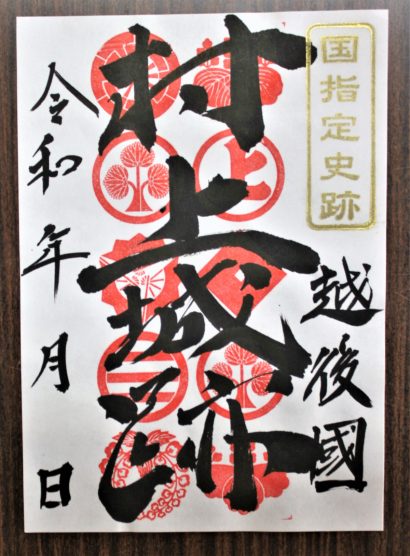 国指定史跡
越後國
村上城跡
令和年月日